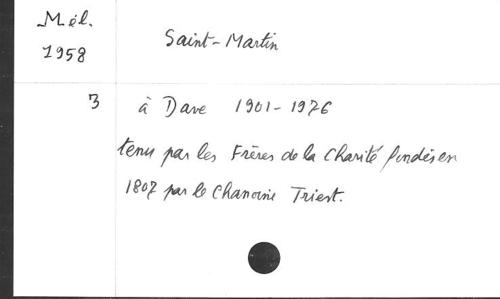 Mél.
1958
Saint-Martin
3
à Dave 1901-1976
tenu par les Frères de la Charité fondés en
1807 par le Chanoine Triest.